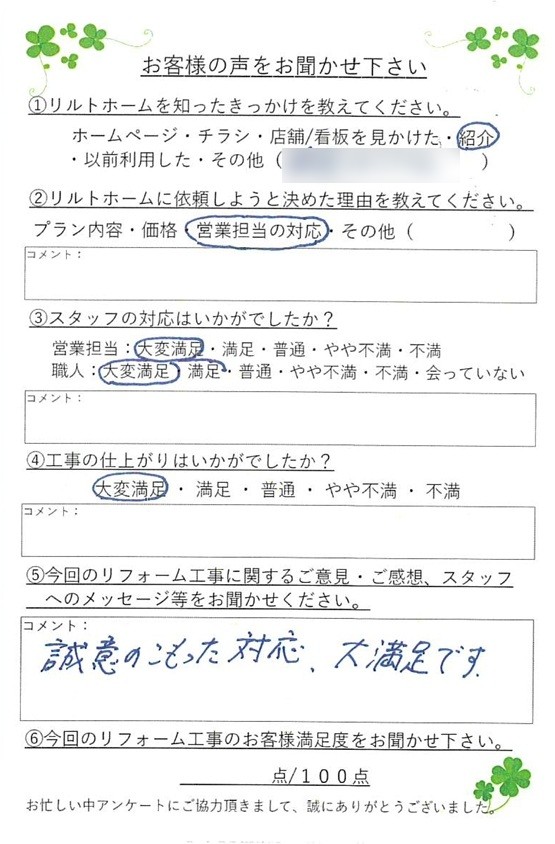 お客様の声をお聞かせ下さい
①リルトホームを知ったきっかけを教えてください。
ホームページ・チラシ・店舗/看板を見かけた・紹介
・以前利用した・その他（　　　　　　　）
②リルトホームに依頼しようと決めた理由を教えてください。
プラン内容・価格・営業担当の対応・その他（　　　　）
コメント：
③スタッフの対応はいかがでしたか？
営業担当：大変満足・満足・普通・やや不満・不満
職人：大変満足・満足・普通・やや不満・不満・会っていない
コメント：
④工事の仕上がりはいかがでしたか？
大変満足・満足・普通・やや不満・不満
コメント：
⑤今回のリフォーム工事に関するご意見・ご感想、スタッフ
へのメッセージ等をお聞かせください。
コメント：
誠意のこもった対応、大満足です.
⑥今回のリフォーム工事のお客様満足度をお聞かせ下さい。
点/１００点
お忙しい中アンケートにご協力頂きまして、誠にありがとうございました。